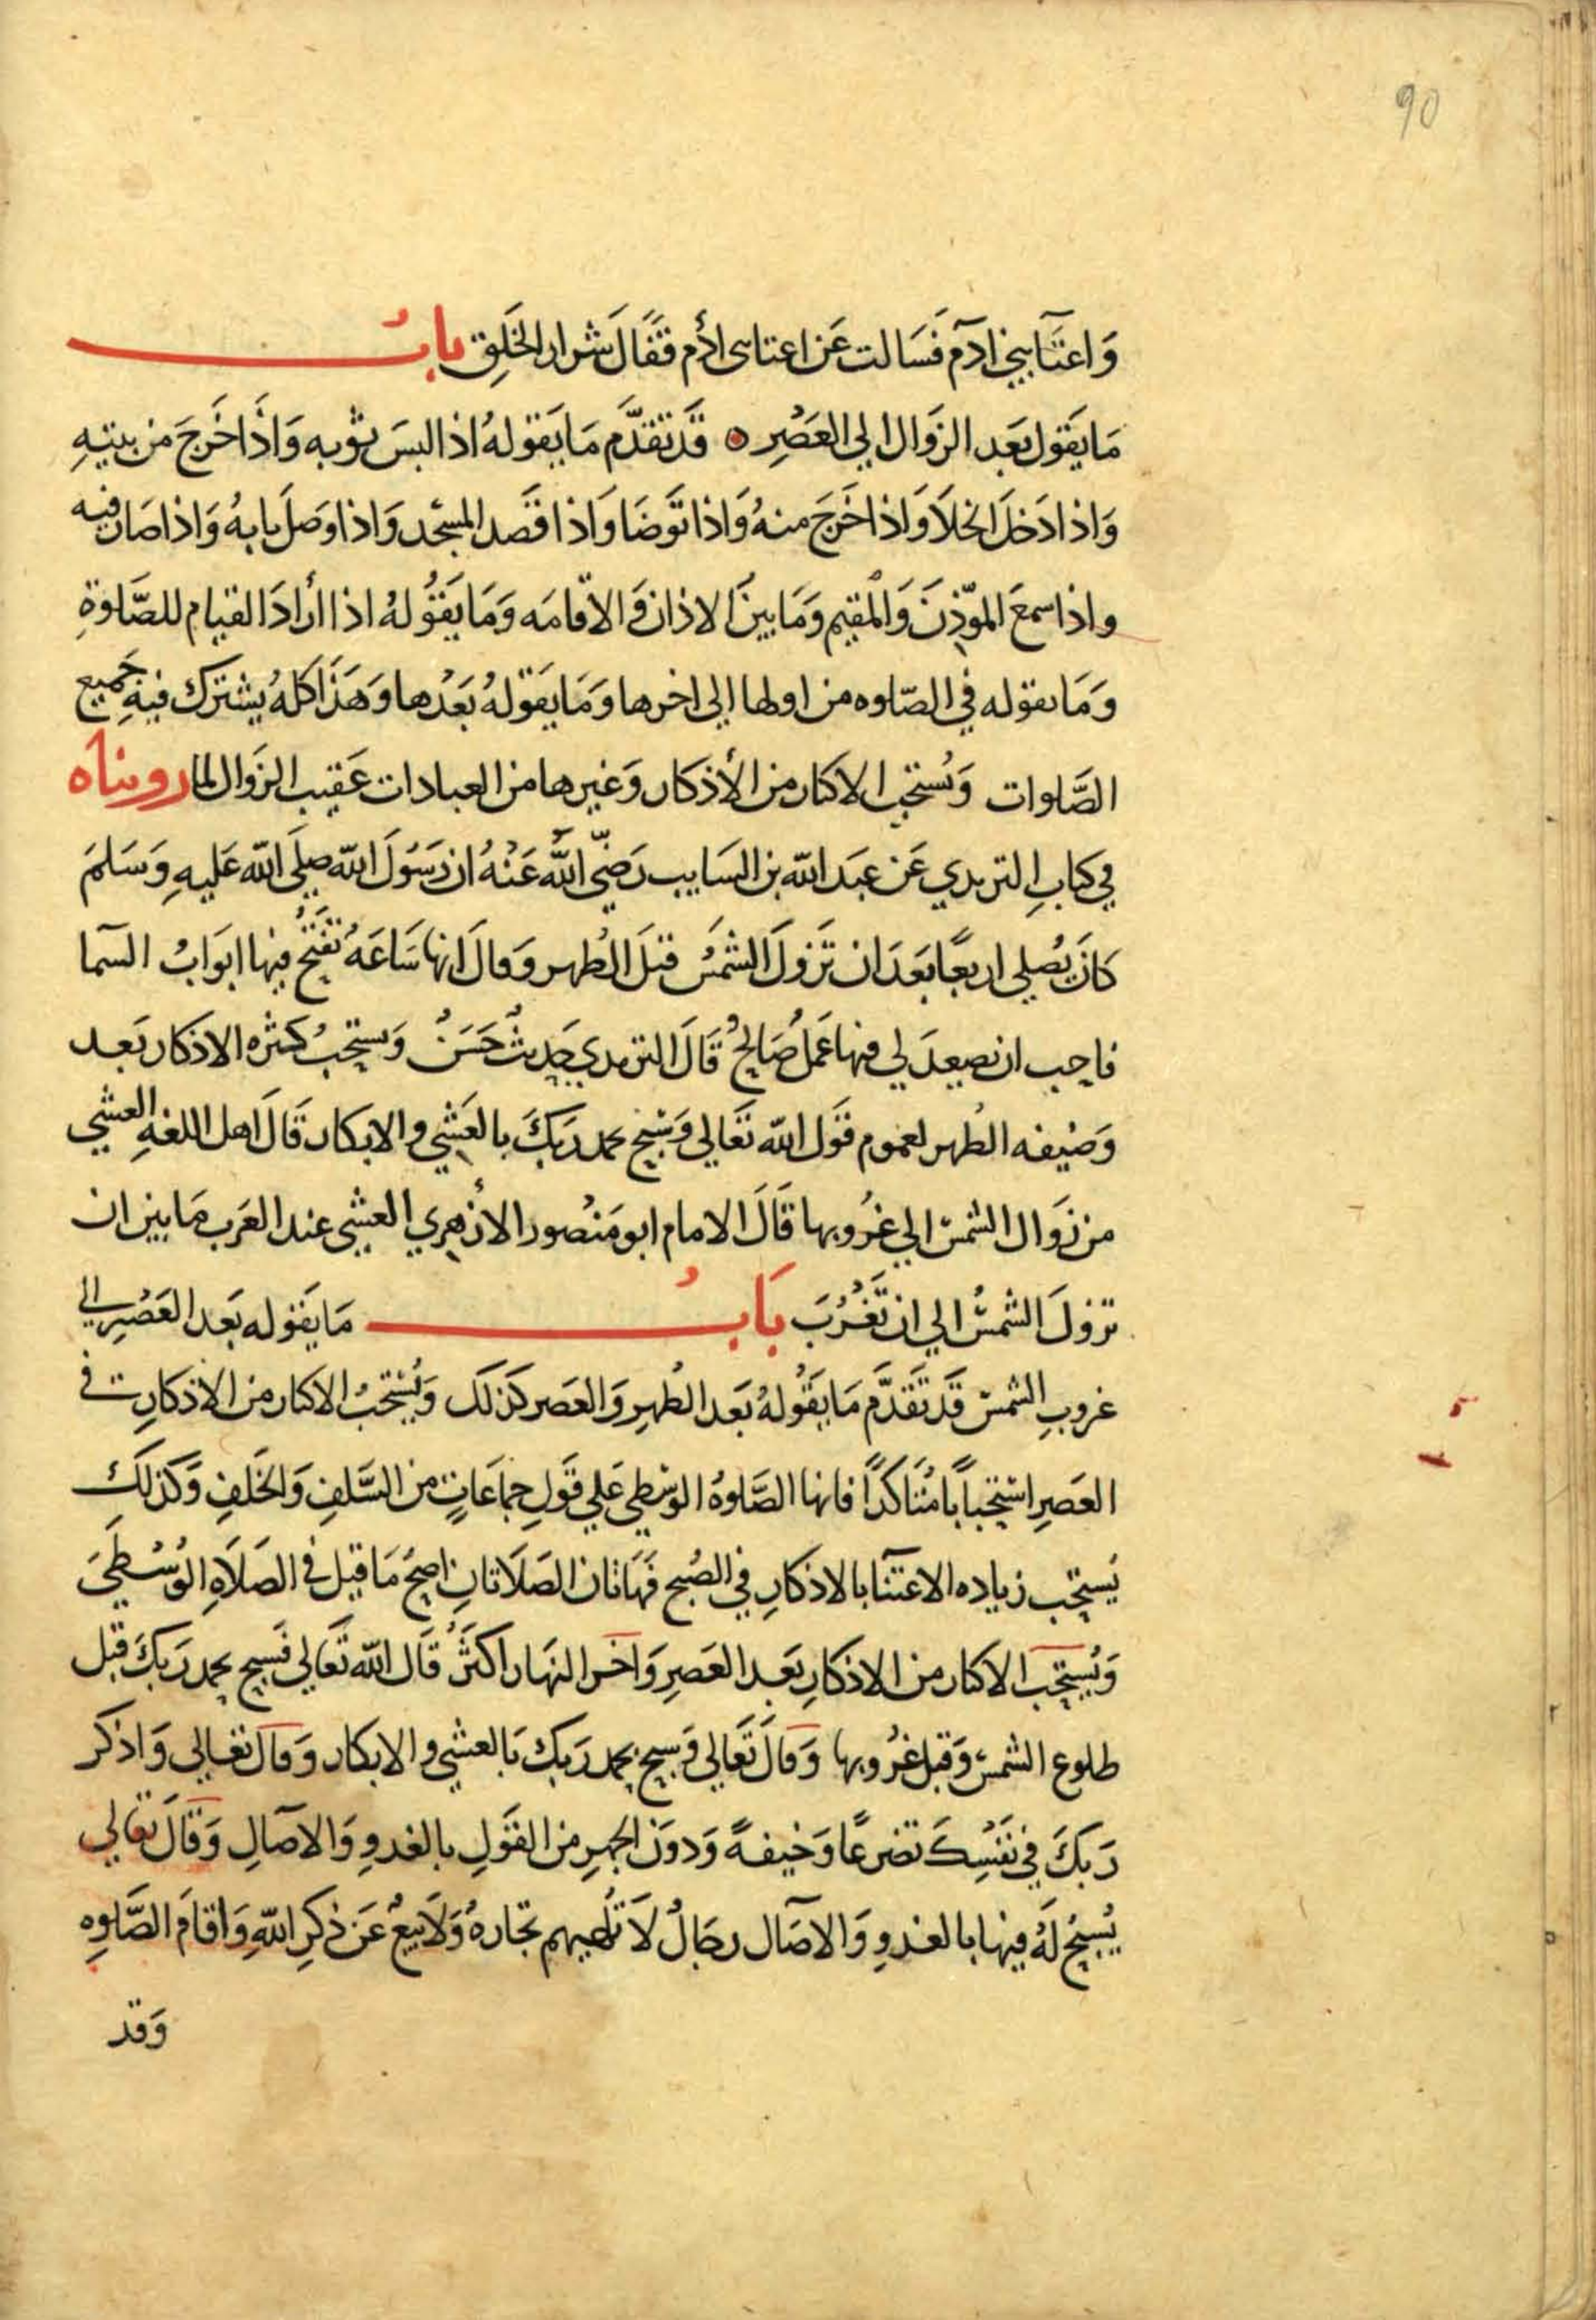 90
وَاعتَآ بني ادَم فَسَالت عَن اعتا بنى ادُم فقَالَ شرار الخَلِق بابُ
مَا يَقول بَعد الزوَال الي العَصْرِ قَد تقدَّم مَا يَقولهُ اذا لبسَ ثوبه وَاذَا خَرجَ من بيتِهِ
وَاذا دَخلَ الخلَا وَاذا خَرجَ منهُ وَاذا توَضا وَاذا قصَد المسجد وَاذا وصَل بابهُ وَاذا صَار فيه
واذا سمعَ الموّذنَ وَالمقيم وَمَا بينَ الاذان وَ الاقامَه وَمَا يَقوُلهُ اذا أرَادَ القيام للصَّلوةِ
وَمَا يقوله في الصّلوه من اولها الي اخرها وَمَا يَقولهُ بَعْدها وَهَذَا كلهُ يشترك فيهِ جَميع
الصَّلوات وَيُستحب الاكثار من الأذكار وَغيرها من العبادات عَقيب الزوَال لما روبناه
في كتابِ الترمدي عَن عبَد الله بن السَايب رَضيّ اللَّه عَنْهُ ان رَسُولَ الله صلي الله عَليهِ وَسَلمَ
كانَ يُصلي اربعًا بَعدَ ان تزولَ الشمسُ قبلَ الظهر وَقالَ انها سَاعَهُ تُفتحُ فيها ابوَابُ السَمآ
فاحب ان يصعدَ لي فيها عَملُ صَالحُ قالَ الترمدي حَديثُ حَسَنُ وَيستحبُ كثره الاذكار بَعد
وَضيفه الظهر لعموم قوَل الله تعَالي وَسَبح بحمد رَبكَ بالعَشي والابكار قالَ اهل اللغهِ العشي
من زوَال الشمسْ الي غرُوبها قالَ الامام ابو مَنصُور الأزهري العشي عند العَرب مَا بين ان
تزولَ الشمسُ الي ان تَغْرُبَ بَابُ مَا يقوله بَعد العَصْرِ الي
غروبِ الشمسْ قَد تَقدَّم مَا يَقوُلهُ بَعد الظهرِ وَالعصَر كذلك وَيُستحبُ الاكثار من الاذكارِ في
العَصرِ استحبابًا مُتاكدًا فانها الصَّلوهُ الوسْطي عَلي قولِ جمَاعَاتٍ من السَّلفِ وَالخلفِ وَكذلكَ
يُستحب زياده الاعتنآ بالاذكارِ في الصُبح فهَاتان الصَلَاتانِ اصحُ مَا قيل في الصَلَاهِ الوُسْطَيَ
وَيُستحبَ الاكثار من الاذكارِ بعَد العَصرِ وَاخر النهَار اكثرُ قَال الله تعَالي فَسبح بحمد رَبكَ قبل
طلوع الشمسْ وَقبل غرُوبها وَقالَ تَعَالي وَسبح بحمد رَبكَ بَالعشي والابكار وَقالَ تعَالي وَاذكر
رَبكَ في نفسِكَ تضرعًا وَخيفةً وَدونَ الجهرِ من القوَلِ بالغدوِ وَالاصَالِ وَقَالَ تعَالي
يُسَبحُ لَهُ فيها بالغدوِ وَالاصَال رجَالُ لَا تُلهيهم تجَارهُ وَلَا بيعُ عَن ذكرِ اللّهِ وَاقامَ الصَّلوهِ
وَقد